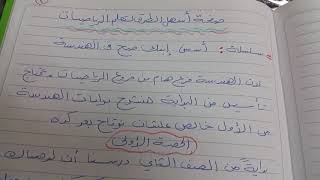 صفحة أسهل الطرق لتعلم الرياضيات
سلسلة: أسس إبنك صح فى الهندسة
لأن الهندسة فرع هام من فروع الرياضيات ومحتاج
تأسيس من البداية هنشرح بدايات الهندسة
من الأول خالص علشان نرتاح بعد كده
الحصة الأولى
بداية من الصف الثانى درسنا أن